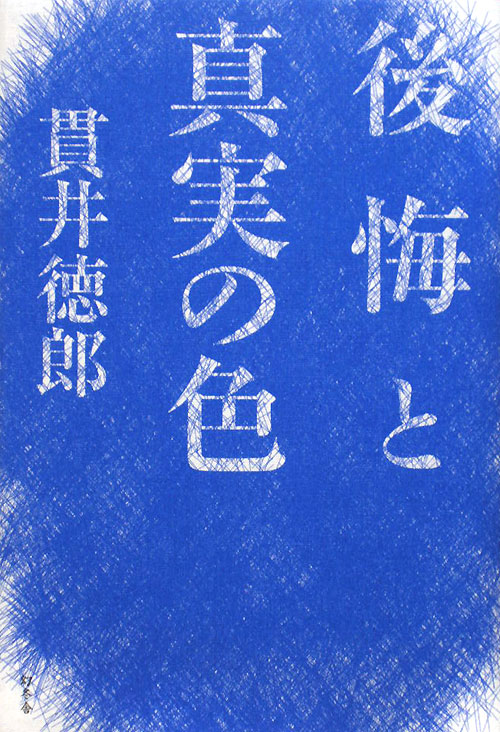 後悔と
真実の色
貫井徳郎
幻冬舎